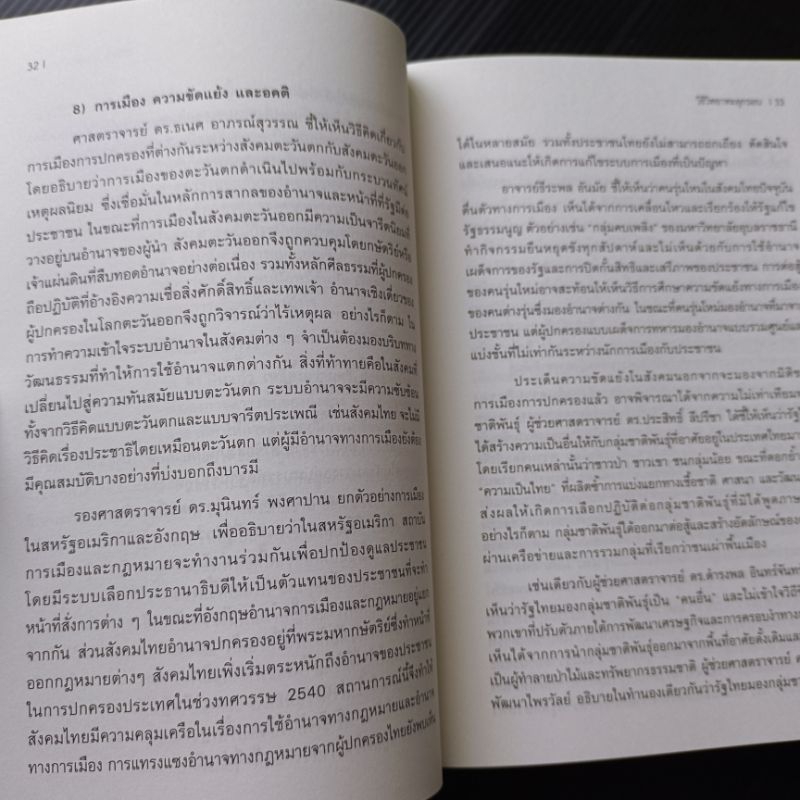 32 |
8) การเมือง ความขัดแย้ง และอคติ
ศาสตราจารย์ ดร.ธเนศ อาภรณ์สุวรรณ ชี้ให้เห็นวิธีคิดเกี่ยวกับ
การเมืองการปกครองที่ต่างกันระหว่างสังคมตะวันตกกับสังคมตะวันออก
โดยอธิบายว่าการเมืองของตะวันตกดำเนินไปพร้อมกับกระบวนทัศน์
เหตุผลนิยม ซึ่งเชื่อมั่นในหลักการสากลของอำนาจและหน้าที่ที่รัฐมีต่อ
ประชาชน ในขณะที่การเมืองในสังคมตะวันออกมีความเป็นจารีตนิยมที่
วางอยู่บนอำนาจของผู้นำ สังคมตะวันออกจึงถูกควบคุมโดยกษัตริย์หรือ
เจ้าแผ่นดินที่สืบทอดอำนาจอย่างต่อเนื่อง รวมทั้งหลักศีลธรรมที่ผู้ปกครอง
ถือปฏิบัติที่อ้างอิงความเชื่อสิ่งศักดิ์สิทธิ์และเทพเจ้า อำนาจเชิงเดี่ยวของ
ผู้ปกครองในโลกตะวันออกจึงถูกวิจารณ์ว่าไร้เหตุผล อย่างไรก็ตาม ใน
การทำความเข้าใจระบบอำนาจในสังคมต่าง ๆ จำเป็นต้องมองบริบททาง
วัฒนธรรมที่ทำให้การใช้อำนาจแตกต่างกัน สิ่งที่ท้าทายคือในสังคมที่
เปลี่ยนไปสู่ความทันสมัยแบบตะวันตก ระบบอำนาจจะมีความซับซ้อน
ทั้งจากวิธีคิดแบบตะวันตกและแบบจารีตประเพณี เช่นสังคมไทย จะไม่มี
วิธีคิดเรื่องประชาธิปไตยเหมือนตะวันตก แต่ผู้มีอำนาจทางการเมืองยังต้อง
มีคุณสมบัติบางอย่างที่บ่งบอกถึงบารมี
รองศาสตราจารย์ ดร.มุนินทร์ พงศาปาน ยกตัวอย่างการเมือง
ในสหรัฐอเมริกาและอังกฤษ เพื่ออธิบายว่าในสหรัฐอเมริกา สถาบัน
การเมืองและกฎหมายจะทำงานร่วมกันเพื่อปกป้องดูแลประชาชน
โดยมีระบบเลือกประธานาธิบดีให้เป็นตัวแทนของประชาชนที่จะทำ
หน้าที่สั่งการต่าง ๆ ในขณะที่อังกฤษอำนาจการเมืองและกฎหมายอยู่แยก
จากกัน ส่วนสังคมไทยอำนาจปกครองอยู่ที่พระมหากษัตริย์ซึ่งทำหน้าที่
ออกกฎหมายต่างๆ สังคมไทยเพิ่งเริ่มตระหนักถึงอำนาจของประชาชน
ในการปกครองประเทศในช่วงทศวรรษ 2540 สถานการณ์นี้จึงทำให้
สังคมไทยมีความคลุมเครือในเรื่องการใช้อำนาจทางกฎหมายและอำนาจ
ทางการเมือง การแทรงแซงอำนาจทางกฎหมายจากผู้ปกครองไทยยังพบเห็น
| 33
ได้ในหลายสมัย รวมทั้งประชาชนไทยยังไม่สามารถถกเถียง ตัดสินใจ
และเสนอแนะให้เกิดการแก้ไขระบบการเมืองที่เป็นปัญหา
อาจารย์ธีระพล อันมัย ชี้ให้เห็นว่าคนรุ่นใหม่ในสังคมไทยปัจจุบัน
ตื่นตัวทางการเมือง เห็นได้จากการเคลื่อนไหวและเรียกร้องให้รัฐแก้ไข
รัฐธรรมนูญ ตัวอย่างเช่น "กลุ่มคบเพลิง" ของมหาวิทยาลัยอุบลราชธานี
ทำกิจกรรมยืนหยุดขังทุกสัปดาห์และไม่เห็นด้วยกับการใช้อำนาจ
เผด็จการของรัฐและการปิดกั้นสิทธิและเสรีภาพของประชาชน การต่อสู้
ของคนรุ่นใหม่อาจสะท้อนให้เห็นวิธีการศึกษาความขัดแย้งทางการเมือง
ของคนต่างรุ่นซึ่งมองอำนาจต่างกัน ในขณะที่คนรุ่นใหม่มองอำนาจที่มาจาก
ประชาชน แต่ผู้ปกครองแบบเผด็จการทหารมองอำนาจแบบรวมศูนย์และ
แบ่งชั้นที่ไม่เท่ากันระหว่างนักการเมืองกับประชาชน
ประเด็นความขัดแย้งในสังคมนอกจากจะมองจากมิติ
การเมืองการปกครองแล้ว อาจพิจารณาได้จากความไม่เท่าเทียม
ชาติพันธุ์ ผู้ช่วยศาสตราจารย์ ดร.ประสิทธิ์ ลีปรีชา ได้ชี้ให้เห็นว่ารัฐ
ได้สร้างความเป็นอื่นให้กับกลุ่มชาติพันธุ์ที่อาศัยอยู่ในประเทศไทยมา
โดยเรียกคนเหล่านั้นว่าชาวป่า ชาวเขา ชนกลุ่มน้อย ขณะที่ตอกย้ำ
"ความเป็นไทย" ที่ผลิตซ้ำการแบ่งแยกทางเชื้อชาติ ศาสนา และวัฒน
ส่งผลให้เกิดการเลือกปฏิบัติต่อกลุ่มชาติพันธุ์ที่มิได้พูดภาษา
อย่างไรก็ตาม กลุ่มชาติพันธุ์ได้ออกมาต่อสู้และสร้างอัตลักษณ์ของ
ผ่านเครือข่ายและการรวมกลุ่มที่เรียกว่าชนเผ่าพื้นเมือง
เช่นเดียวกับผู้ช่วยศาสตราจารย์ ดร.ดำรงพล อินทร์จันทร์
เห็นว่ารัฐไทยมองกลุ่มชาติพันธุ์เป็น "คนอื่น" และไม่เข้าใจวิถี
พวกเขาที่ปรับตัวภายใต้การพัฒนาเศรษฐกิจและการครอบงำทาง
เห็นได้จากการนำกลุ่มชาติพันธุ์ออกมาจากพื้นที่อาศัยดั้งเดิม
เป็นผู้ทำลายป่าไม้และทรัพยากรธรรมชาติ ผู้ช่วยศาสตราจารย์
พัฒนาไพรวัลย์ อธิบายในทำนองเดียวกันว่ารัฐไทยมองกลุ่ม